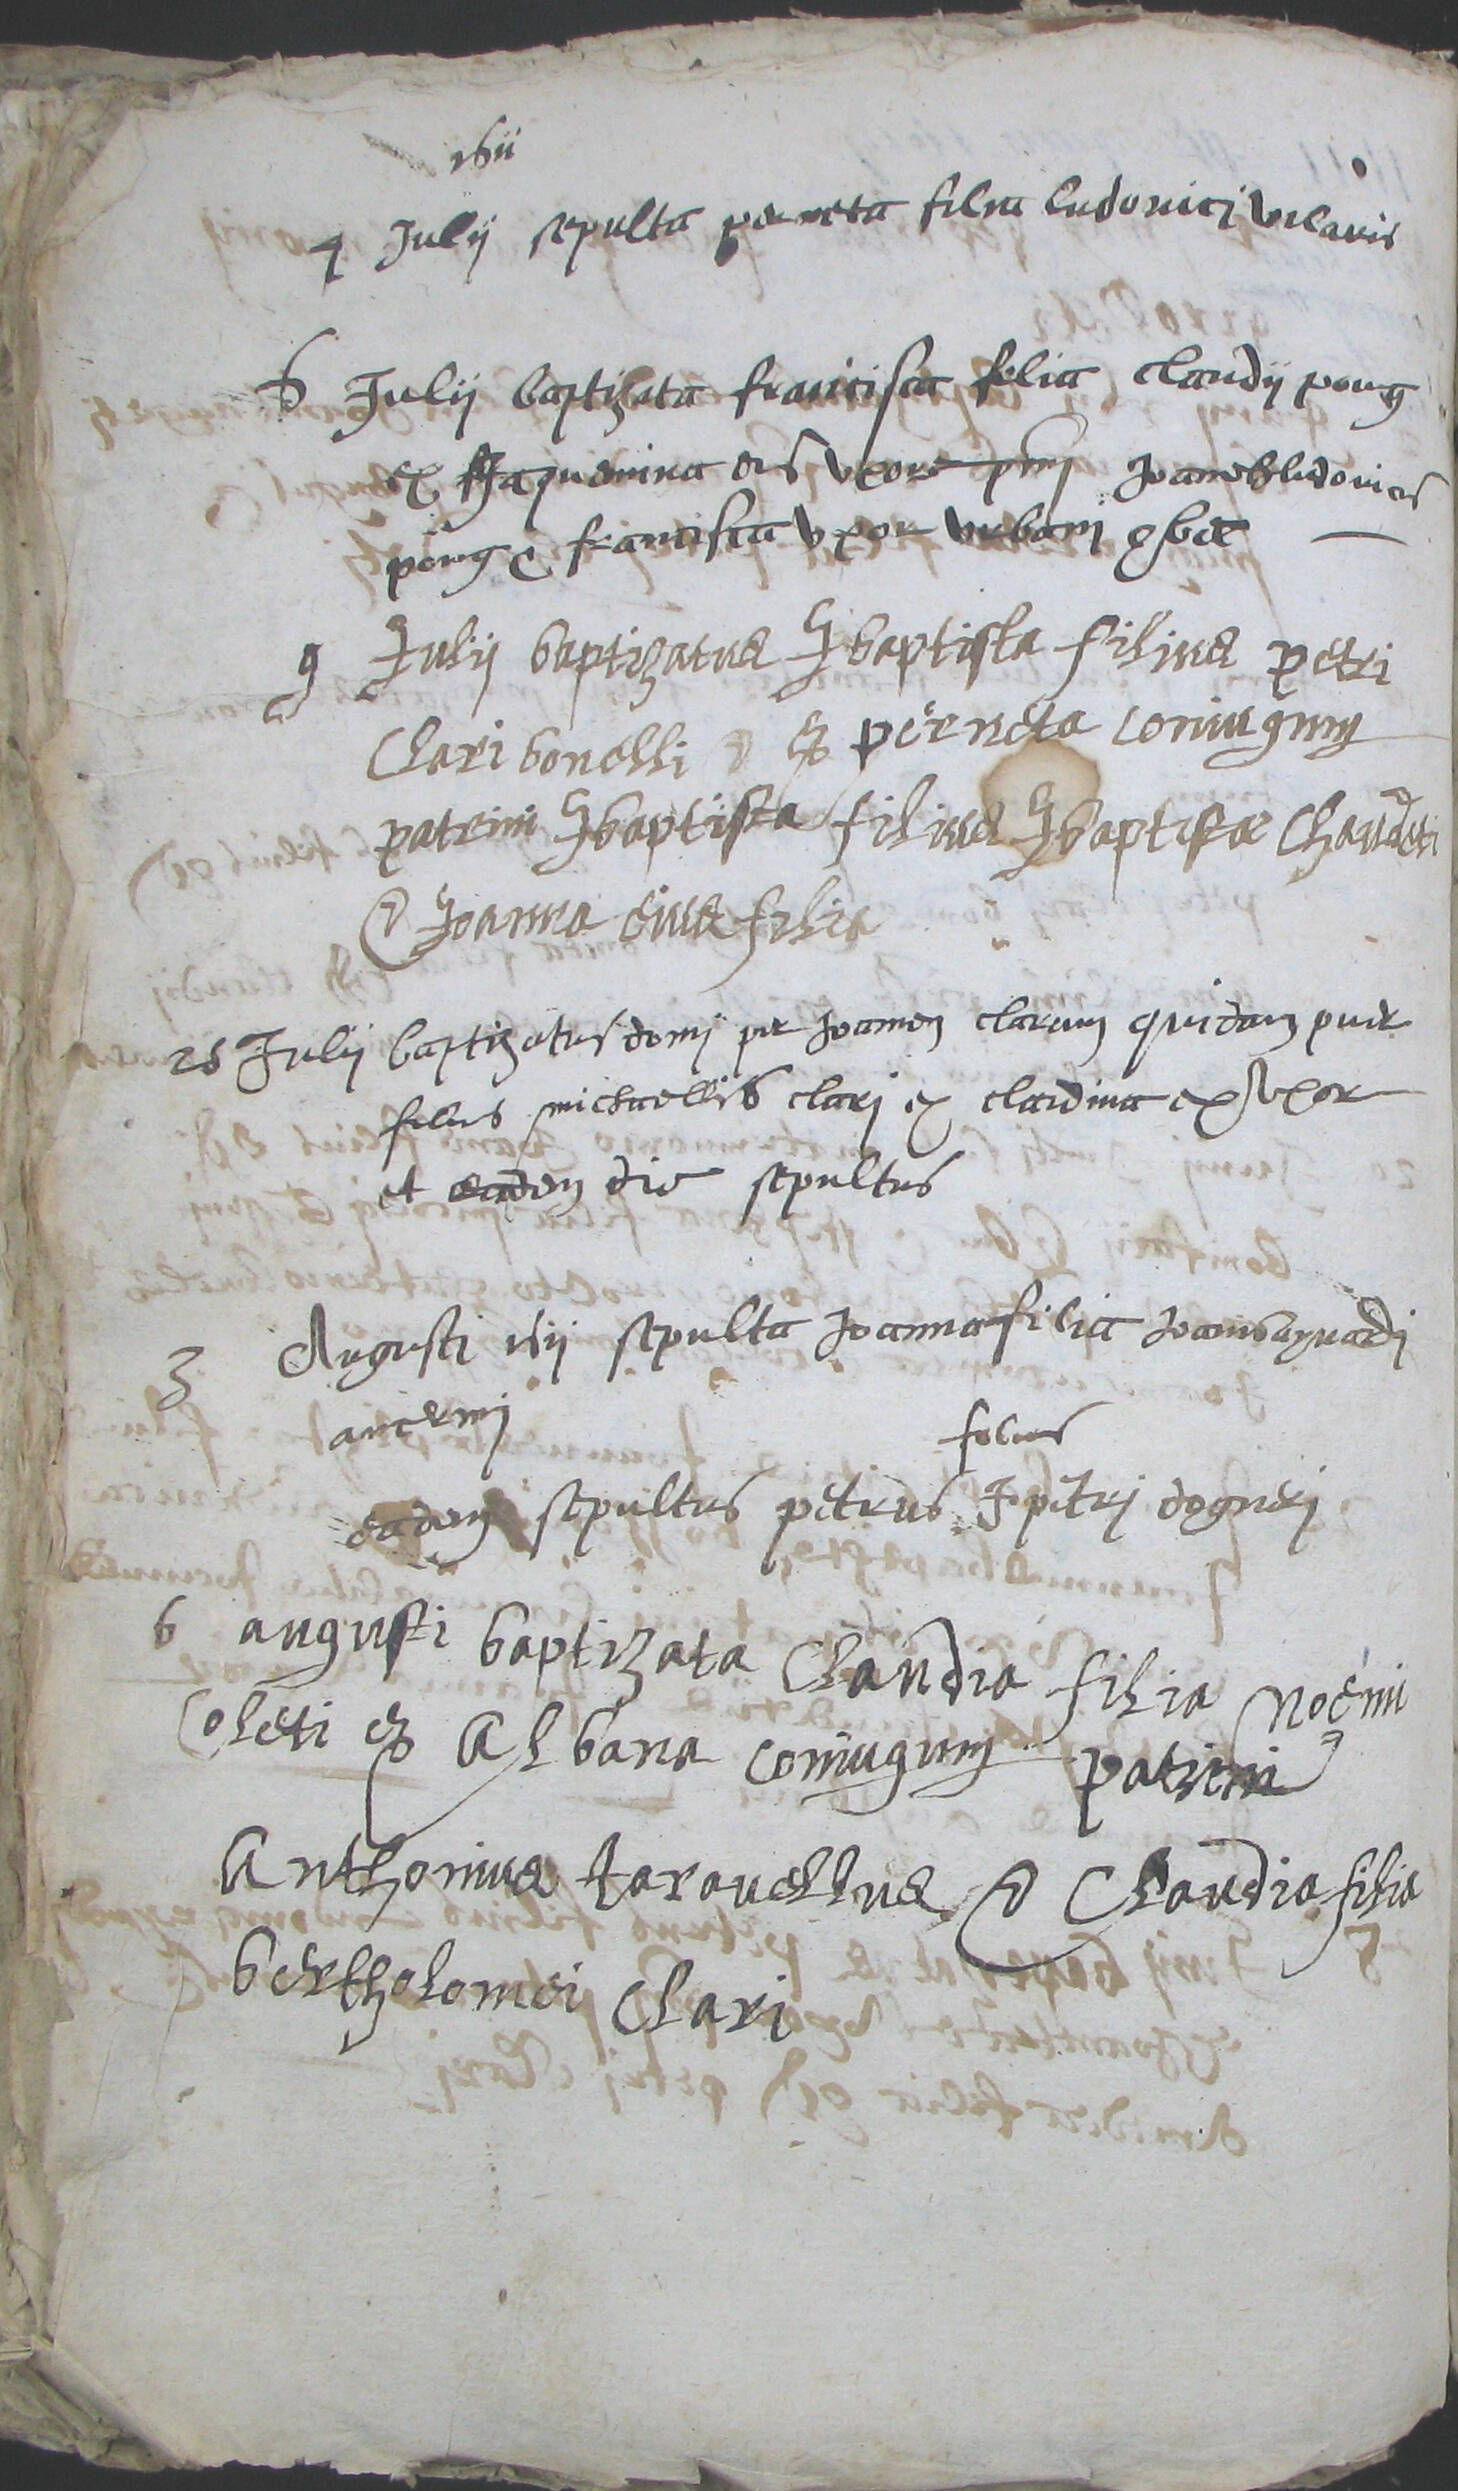 1611
4 Julij sepulta perneta filia ludovici vilaris
6 Julij baptizata francisca filia claudij pong
ex Jaquemina eius uxore pmi Joannes ludovicus
pong & francisca uxor urbani
9 Julij baptizatus J baptista filius petri
Clari bonelli & perneta coniugum
patrini J baptista filius J baptistæ Chaudeti
& Joanna eius filia
25 Julij baptizatus domi per Joannem clarum quidam puer
filius michaellis clari ex claudina uxor
et eadem die sepultus
3 Augusti 1611 sepulta Joanna filia
filius
eadem sepultus petrus J petri
6 augusti baptizata Claudia filia
Coleti & Albana coniugum patrini
Anthonius taravellus & Claudia filia
bertholomei Clari